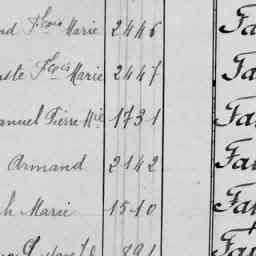 nd Fçois Marie 2446 Fa
uste Fçois Marie 2447 Fa
anuel Pierre Mie 1731 Fa
Armand 2142 Fau
h Marie 1510 Fau
Gustave 891 Fau